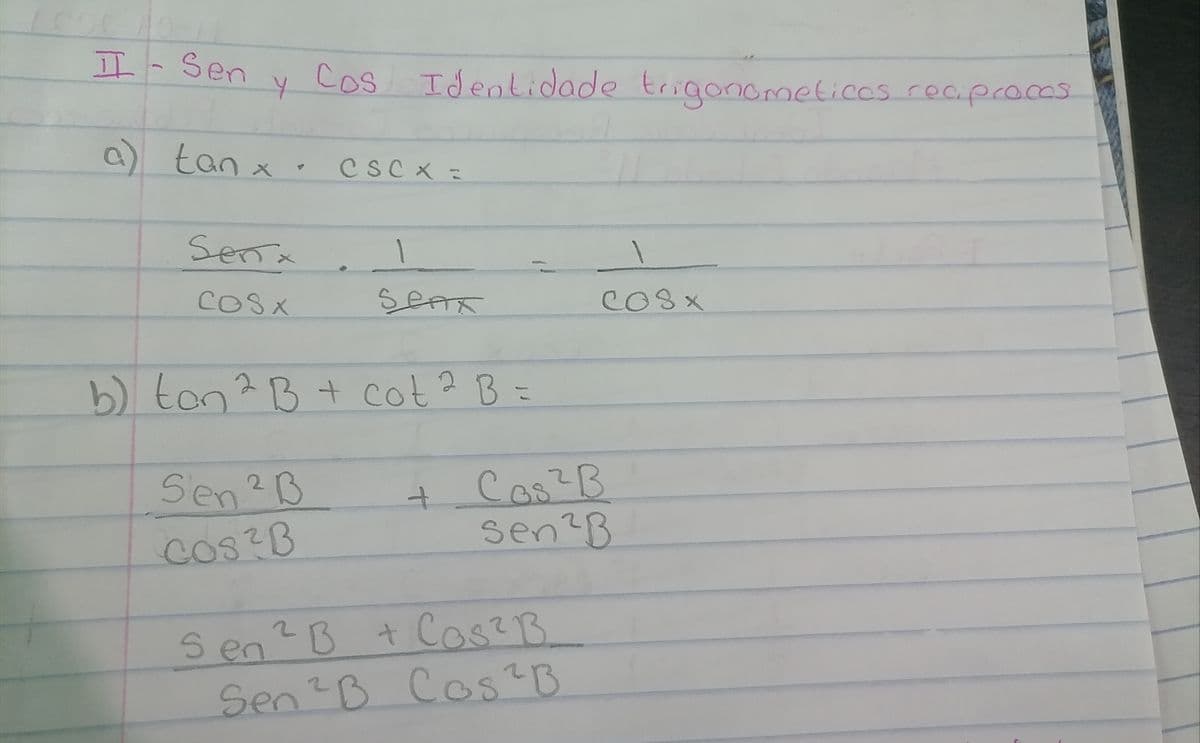 II - Sen y Cos Identidade trigonometicas reciprocas
a) tan x · csc x =
Sen x / cos x · 1 / sen x = 1 / cos x
b) tan² B + cot² B =
Sen² B / cos² B + Cos² B / sen² B
Sen² B + Cos² B / Sen² B Cos² B